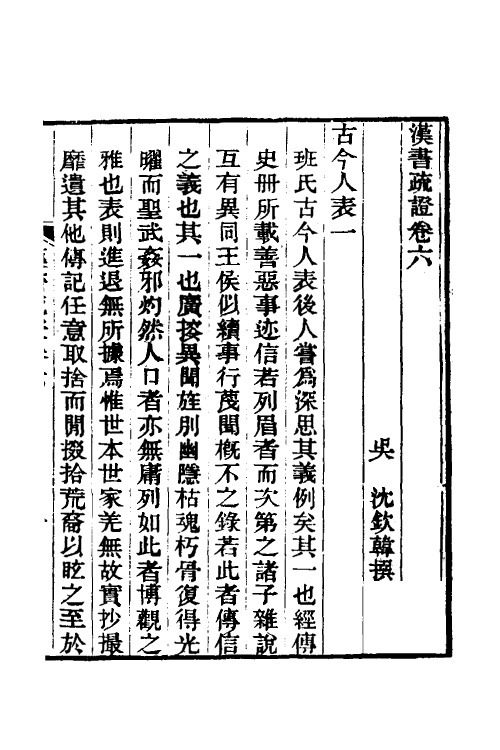 漢書疏證卷六
吳　沈欽韓撰
古今人表一
班氏古今人表後人嘗爲深思其義例矣其一也經傳
史冊所載善惡事迹信若列眉者而次第之諸子雜說
互有異同王侯似續事行蔑聞槪不之錄若此者傳信
之義也其一也廣搜異聞旌別幽隱枯魂朽骨復得光
曜而聖武姦邪灼然人口者亦無庸列如此者博觀之
雅也表則進退無所據焉惟世本世家羌無故實抄最
靡遺其他傳記任意取捨而閒掇拾荒裔以眩之至於